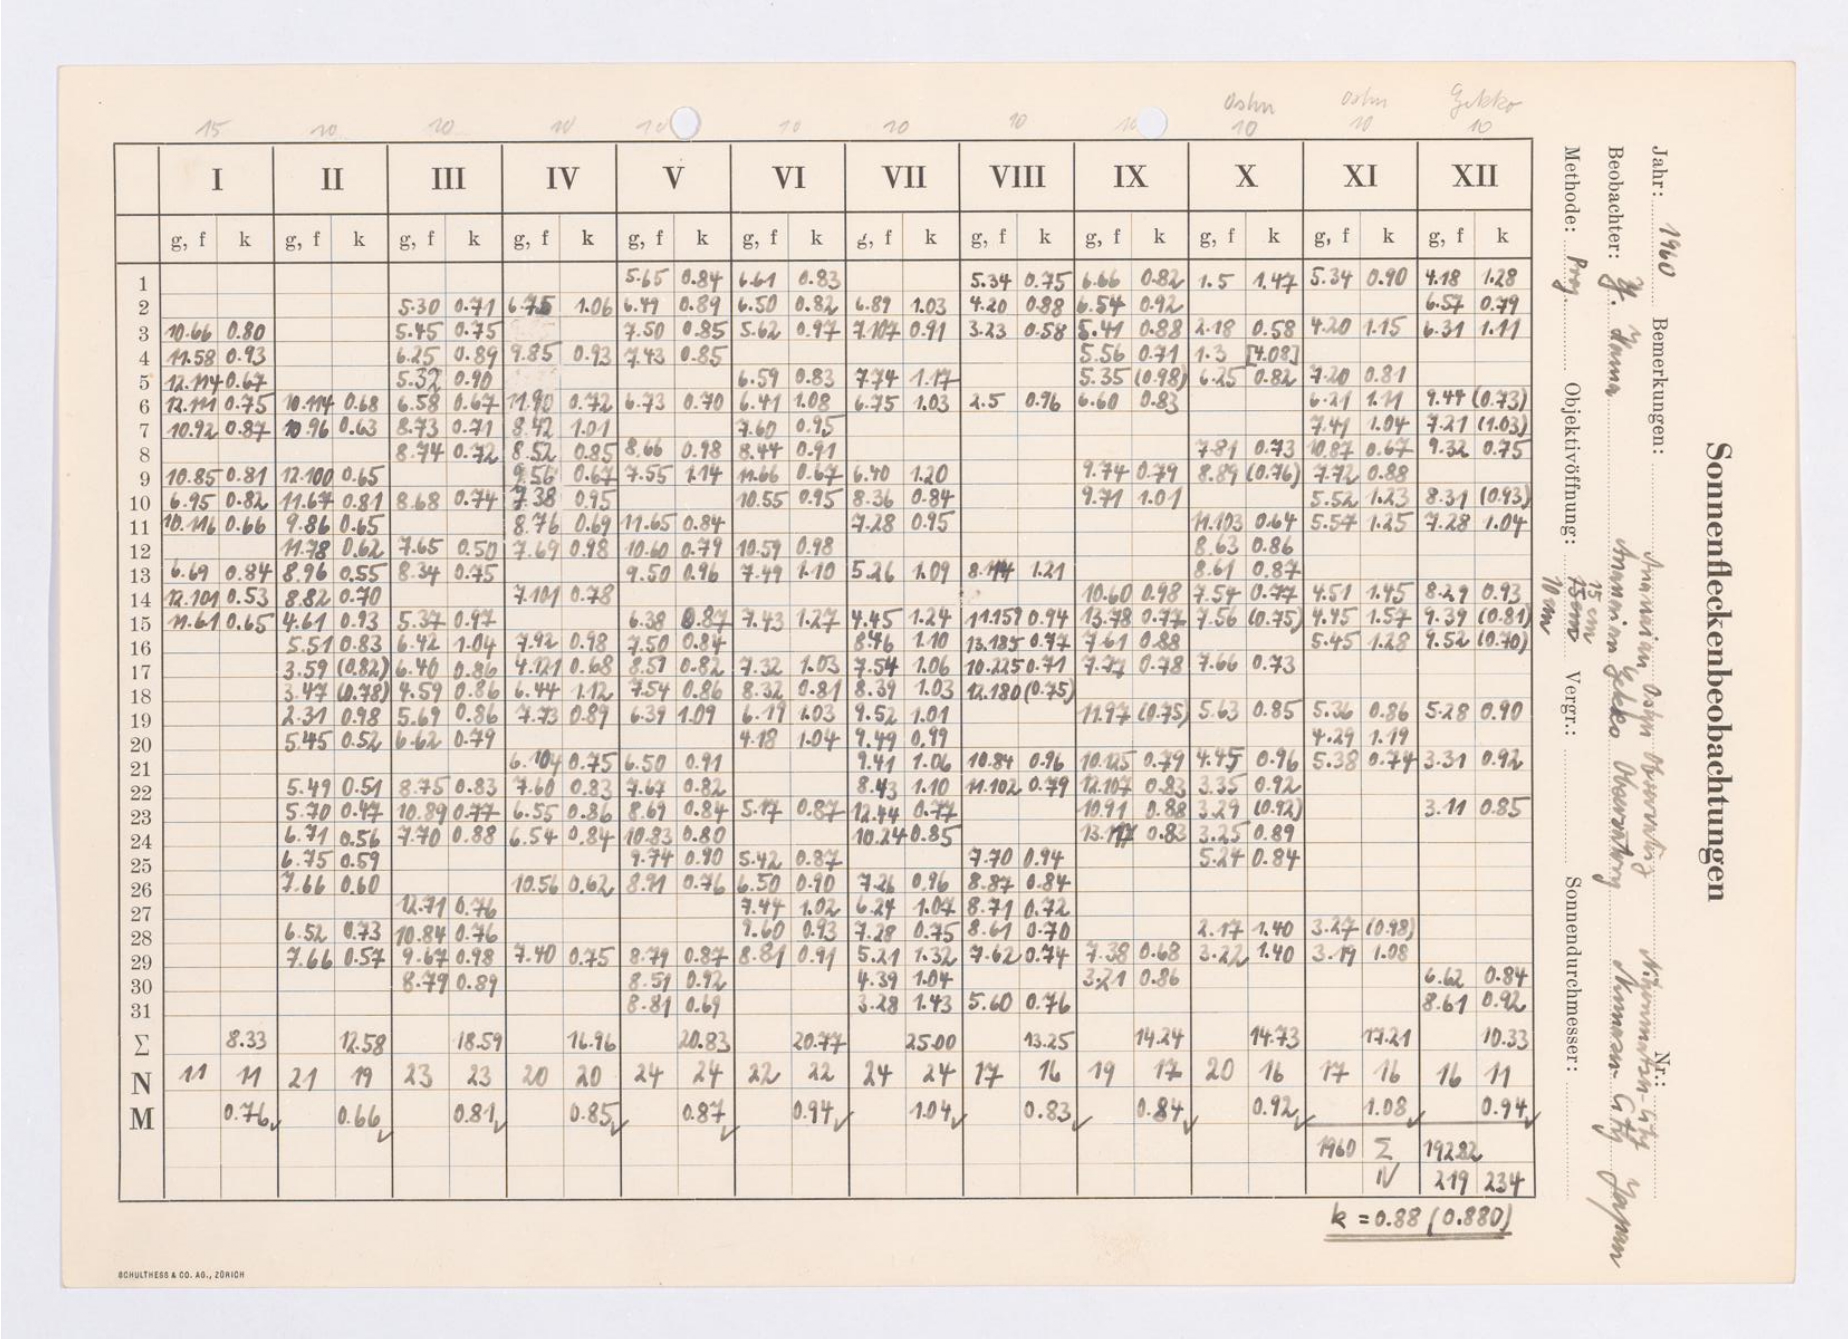 Sonnenfleckenbeobachtungen
Jahr: 1960 Bemerkungen: Ananaien Oshn Observatory Nr.:
Beobachter: Y. Ananaien Gekko Observatory City Japan
Methode: Proj. Objektivöffnung: 15 cm 10 cm Vergr.: Sonnendurchmesser:
Oshn Oshn Gekko
15 10 10 10 10 10 10 10 10 10 10 10
I II III IV V VI VII VIII IX X XI XII
g, f k g, f k g, f k g, f k g, f k g, f k g, f k g, f k g, f k g, f k g, f k g, f k
1 5.65 0.84 6.61 0.83 5.34 0.75 6.66 0.82 1.5 1.47 5.34 0.90 4.18 1.28
2 5.30 0.71 6.75 1.06 6.49 0.89 6.50 0.82 6.89 1.03 4.20 0.88 6.54 0.92 6.57 0.79
3 10.66 0.80 5.45 0.75 7.50 0.85 5.62 0.97 7.107 0.91 3.23 0.58 5.41 0.88 2.18 0.58 4.20 1.15 6.31 1.11
4 11.58 0.93 6.25 0.89 9.85 0.93 7.43 0.85 5.56 0.71 1.3 [4.08]
5 12.114 0.67 5.32 0.90 6.59 0.83 7.74 1.17 5.35 (0.98) 6.25 0.82 7.20 0.81
6 12.111 0.75 10.114 0.68 6.58 0.67 11.90 0.72 6.73 0.70 6.41 1.08 6.75 1.03 2.5 0.96 6.60 0.83 6.21 1.11 9.44 (0.73)
7 10.92 0.87 10.96 0.63 8.73 0.71 8.42 1.01 7.60 0.95 7.41 1.04 7.21 (1.03)
8 8.74 0.72 8.52 0.85 8.66 0.98 8.44 0.91 7.81 0.73 10.87 0.67 9.32 0.75
9 10.85 0.81 12.100 0.65 9.56 0.67 7.55 1.14 11.66 0.67 6.40 1.20 9.74 0.79 8.89 (0.76) 7.72 0.88
10 6.95 0.82 11.67 0.81 8.68 0.74 7.38 0.95 10.55 0.95 8.36 0.84 9.71 1.01 5.52 1.23 8.31 (0.93)
11 10.116 0.66 9.86 0.65 8.76 0.69 11.65 0.84 7.28 0.95 11.103 0.64 5.57 1.25 7.28 1.04
12 11.78 0.62 7.65 0.50 7.69 0.98 10.60 0.79 10.59 0.98 8.63 0.86
13 6.69 0.84 8.96 0.55 8.34 0.75 9.50 0.96 7.49 1.10 5.26 1.09 8.114 1.21 8.61 0.87
14 12.101 0.53 8.82 0.70 7.101 0.78 10.60 0.98 7.54 0.77 4.51 1.45 8.29 0.93
15 11.61 0.65 4.61 0.93 5.37 0.97 6.38 0.87 7.43 1.27 4.45 1.24 11.159 0.94 13.78 0.77 7.56 (0.75) 4.45 1.57 9.39 (0.81)
16 5.51 0.83 6.42 1.04 7.92 0.98 7.50 0.84 8.46 1.10 13.185 0.77 7.61 0.88 5.45 1.28 9.52 (0.70)
17 3.59 (0.82) 6.40 0.86 4.121 0.68 8.51 0.82 7.32 1.03 7.54 1.06 10.225 0.71 7.77 0.78 7.66 0.73
18 3.47 (0.78) 4.59 0.86 6.44 1.12 7.54 0.86 8.32 0.81 8.39 1.03 12.180 (0.75)
19 2.31 0.98 5.69 0.86 7.73 0.89 6.39 1.09 6.19 1.03 9.52 1.01 11.97 (0.75) 5.63 0.85 5.36 0.86 5.28 0.90
20 5.45 0.52 6.62 0.79 4.18 1.04 9.49 0.99 4.29 1.19
21 6.104 0.75 6.50 0.91 9.41 1.06 10.84 0.96 10.125 0.79 4.45 0.96 5.38 0.74 3.31 0.92
22 5.49 0.51 8.75 0.83 7.60 0.83 7.67 0.82 8.43 1.10 11.102 0.79 12.107 0.83 3.35 0.92
23 5.70 0.47 10.89 0.77 6.55 0.86 8.69 0.84 5.17 0.87 12.44 0.77 10.91 0.88 3.29 (0.92) 3.11 0.85
24 6.71 0.56 7.70 0.88 6.54 0.84 10.83 0.80 10.24 0.85 13.117 0.83 3.25 0.89
25 6.75 0.59 9.74 0.90 5.42 0.87 7.70 0.94 5.24 0.84
26 7.66 0.60 10.56 0.62 8.91 0.76 6.50 0.90 7.26 0.96 8.87 0.84
27 12.71 0.76 7.44 1.02 6.24 1.07 8.71 0.72
28 6.52 0.73 10.84 0.76 9.60 0.93 7.28 0.75 8.61 0.70 2.17 1.40 3.27 (0.98)
29 7.66 0.57 9.67 0.98 7.40 0.75 8.79 0.87 8.81 0.91 5.21 1.32 7.62 0.74 7.38 0.68 3.22 1.40 3.19 1.08
30 8.79 0.89 8.51 0.92 4.39 1.04 3.21 0.86 6.62 0.84
31 8.81 0.69 3.28 1.43 5.60 0.76 8.61 0.92
Σ 8.33 12.58 18.59 16.96 20.83 20.77 25.00 13.25 14.24 14.73 17.21 10.33
N 11 11 21 19 23 23 20 20 24 24 22 22 24 24 17 16 19 17 20 16 17 16 16 11
M 0.76 0.66 0.81 0.85 0.87 0.94 1.04 0.83 0.84 0.92 1.08 0.94
1960 Σ 192.82
N 219 234
k = 0.88 (0.880)
SCHULTHESS & CO. AG., ZÜRICH